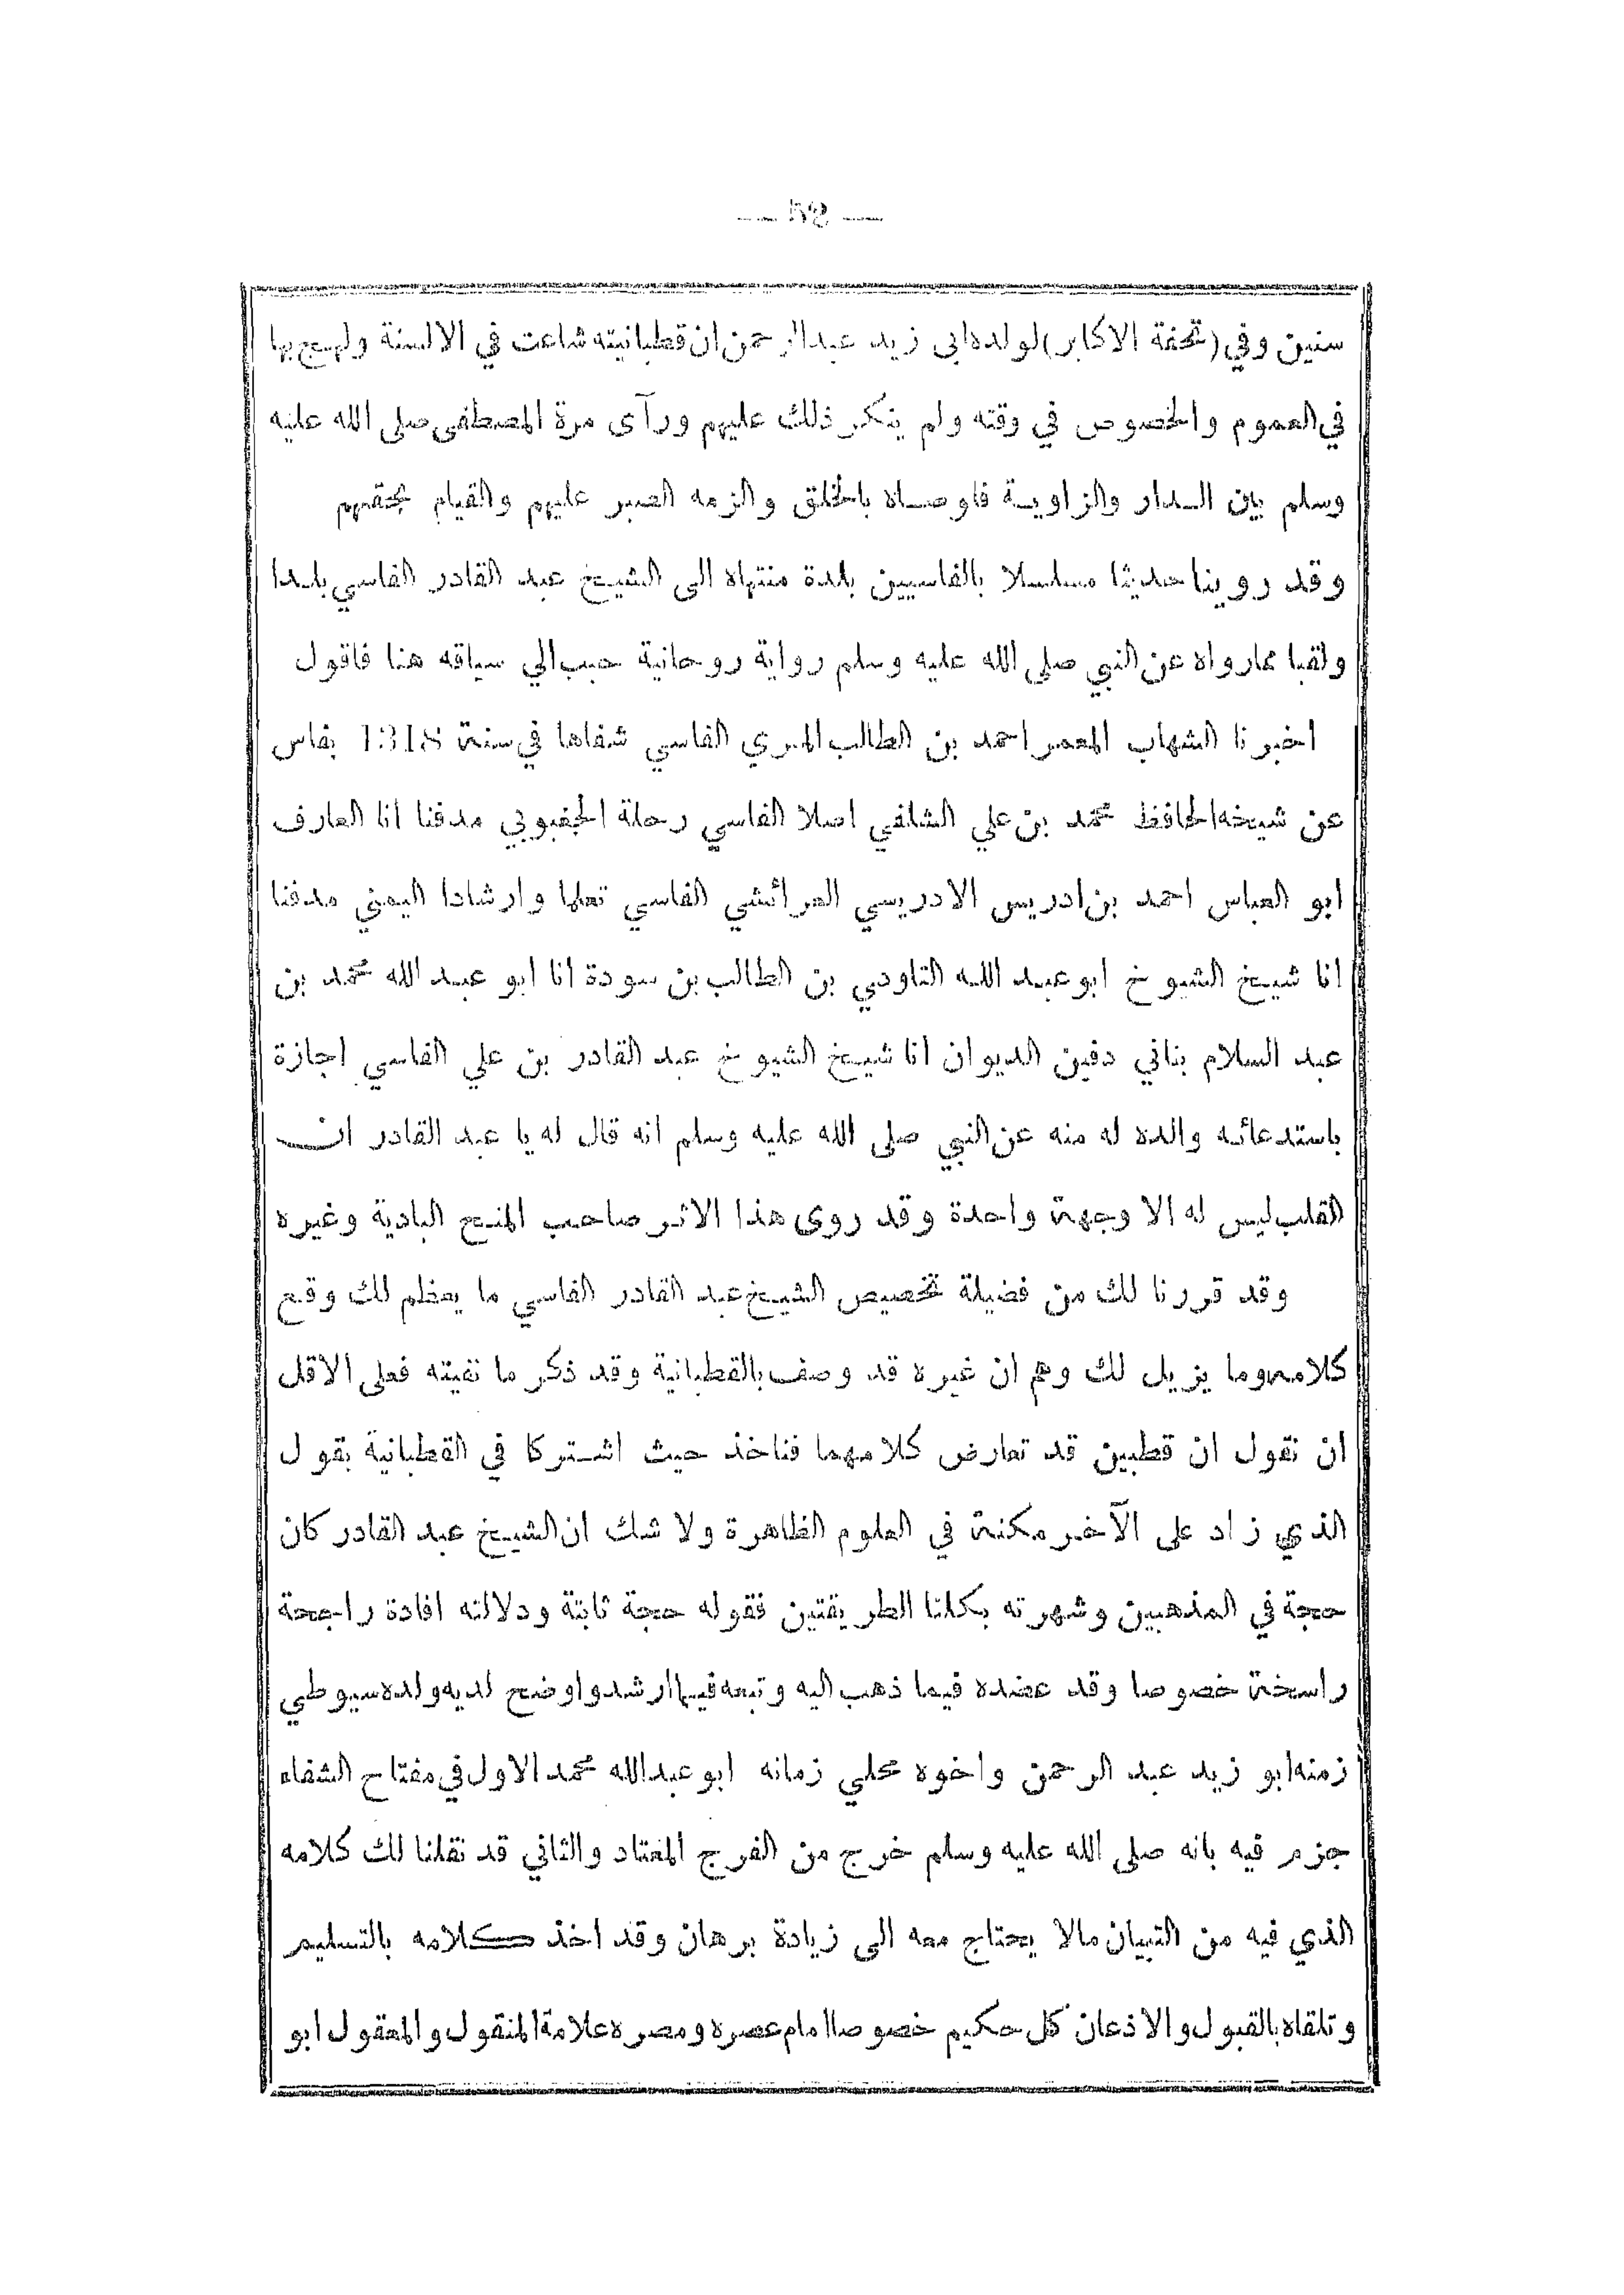 سنين وفي (تحفة الاكابر) لولده ابى زيد عبد الرحمن ان قطبانيته شاعت في الالسنة ولهج بها
في العموم والخصوص في وقته ولم ينكر ذلك عليهم ورآى مرة المصطفى صلى الله عليه
وسلم بين الدار والزاوية فاوصاه بالخلق والزمه الصبر عليهم والقيام بحقهم
وقد روينا حديثا مسلسلا بالفاسيين بلدة منتهاه الى الشيخ عبد القادر الفاسي بلدا
ولقبا مما رواه عن النبي صلى الله عليه وسلم رواية روحانية حبب الي سياقه هنا فاقول
اخبرنا الشهاب المعمر احمد بن الطالب المري الفاسي شفاها في سنة 1318 بفاس
عن شيخه الحافظ محمد بن علي الشلفي اصلا الفاسي رحلة الجغبوبي مدفنا انا العارف
ابو العباس احمد بن ادريس الادريسي العرائشي الفاسي تعلما وارشادا اليمني مدفنا
انا شيخ الشيوخ ابو عبد الله التاودي بن الطالب بن سودة انا ابو عبد الله محمد بن
عبد السلام بناني دفين الديوان انا شيخ الشيوخ عبد القادر بن علي الفاسي اجازة
باستدعائه والده له منه عن النبي صلى الله عليه وسلم انه قال له يا عبد القادر ان
القلب ليس له الا وجهة واحدة وقد روى هذا الاثر صاحب المنح البادية وغيره
وقد قررنا لك من فضيلة تخصيص الشيخ عبد القادر الفاسي ما يعظم لك وقع
كلامه وما يزيل لك وهم ان غيره قد وصف بالقطبانية وقد ذكر ما نفيته فعلى الاقل
ان نقول ان قطبين قد تعارض كلامهما فناخذ حيث اشتركا في القطبانية بقول
الذي زاد على الآخر مكنة في العلوم الظاهرة ولا شك ان الشيخ عبد القادر كان
حجة في المذهبين وشهرته بكلتا الطريقتين فقوله حجة ثابتة ودلالته افادة راجحة
راسخة خصوصا وقد عضده فيما ذهب اليه وتبعه فيما ارشد واوضح لديه ولده سيوطي
زمنه ابو زيد عبد الرحمن واخوه محلي زمانه ابو عبد الله محمد الاول في مفتاح الشفاه
جزم فيه بانه صلى الله عليه وسلم خرج من الفرج المعتاد والثاني قد نقلنا لك كلامه
الذي فيه من التبيان مالا يحتاج معه الى زيادة برهان وقد اخذ كلامه بالتسليم
وتلقاه بالقبول والاذعان كل حكيم خصوصا امام عصره ومصره علامة المنقول والمعقول ابو